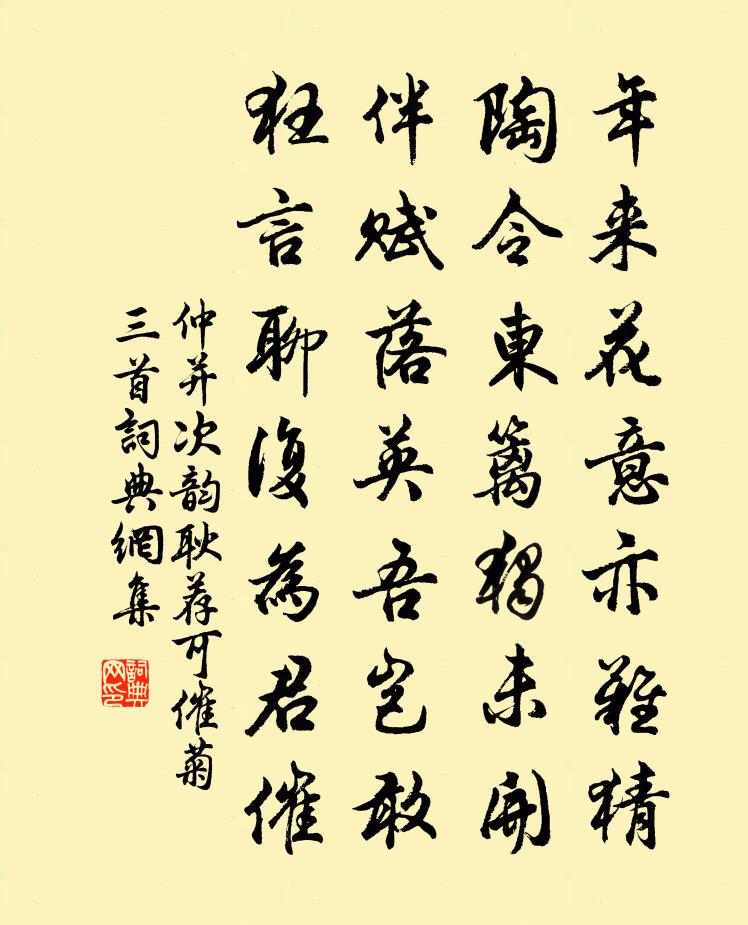 年来花意亦難猜
陶令東籬獨未開
伴赋落英吾岂敢
狂言聊復為君催
仲并次韵耿荐可催菊
三首詞典網集
詞典网印